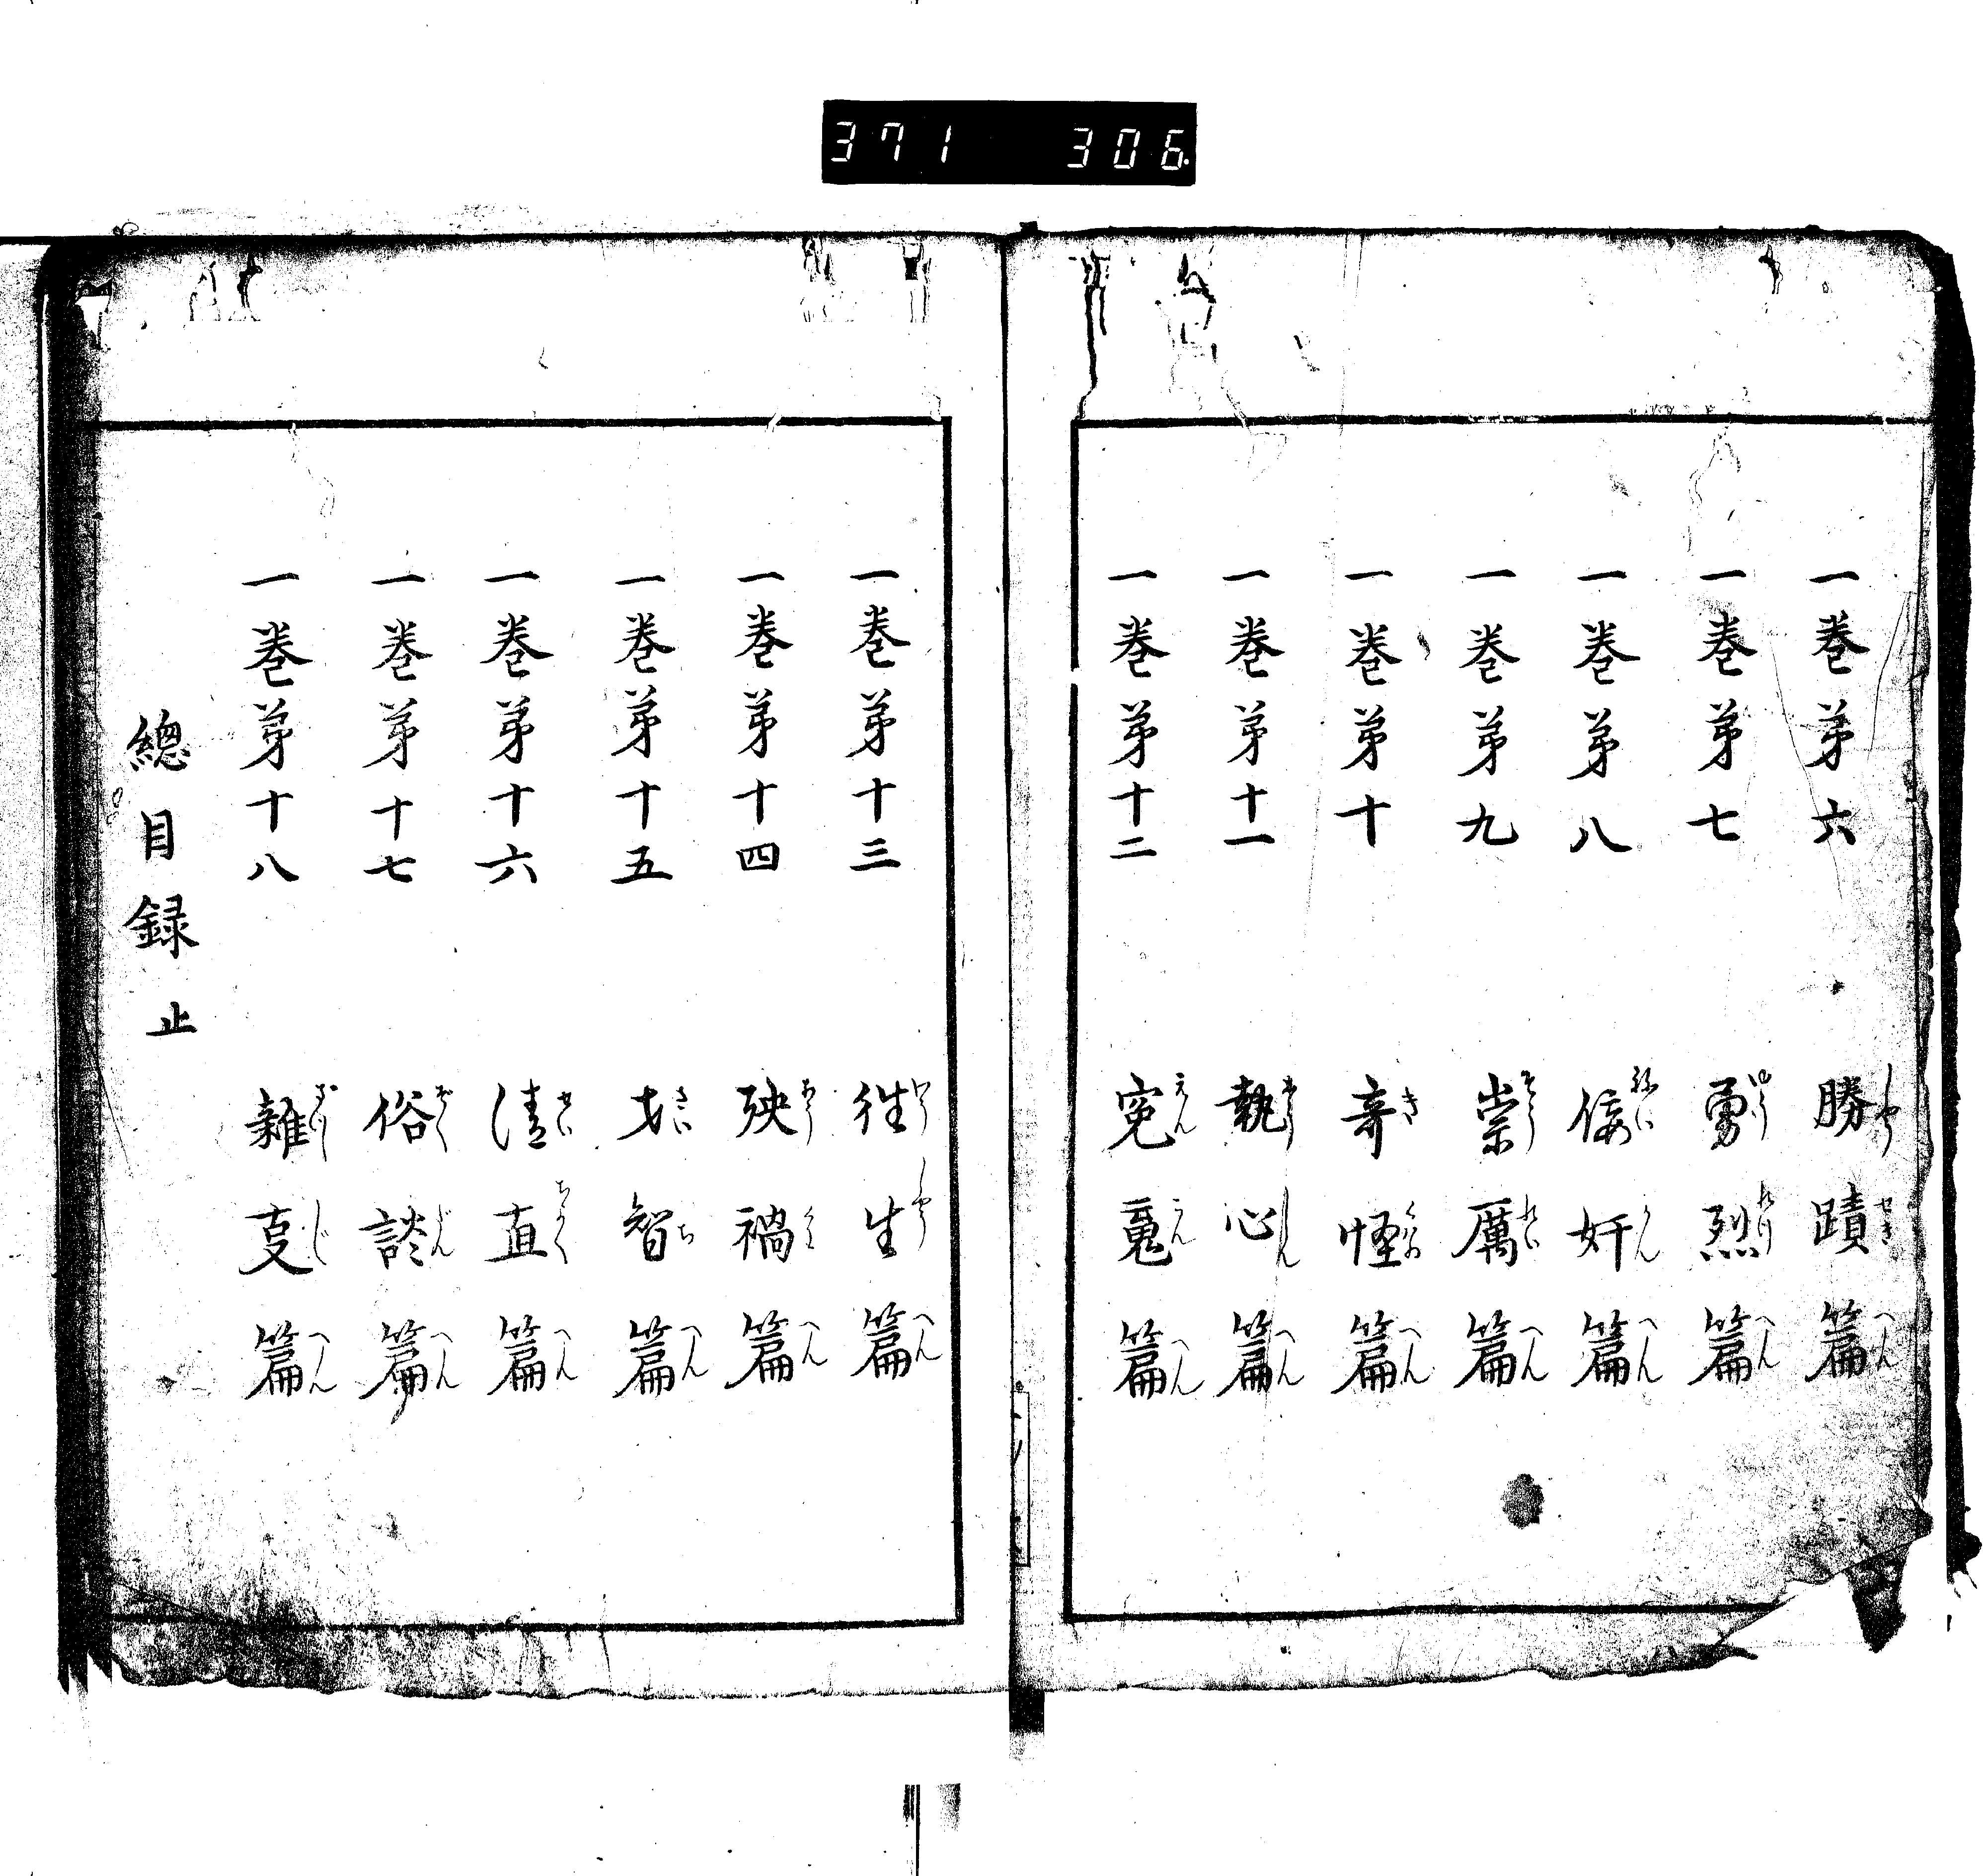 371 306
一巻第六 勝蹟篇
一巻第七 勇烈篇
一巻第八 佞奸篇
一巻第九 崇厲篇
一巻第十 奇怪篇
一巻第十一 執心篇
一巻第十二 冤魂篇
一巻第十三 往生篇
一巻第十四 殃禍篇
一巻第十五 才智篇
一巻第十六 清直篇
一巻第十七 俗談篇
一巻第十八 雜叓篇
總目録止